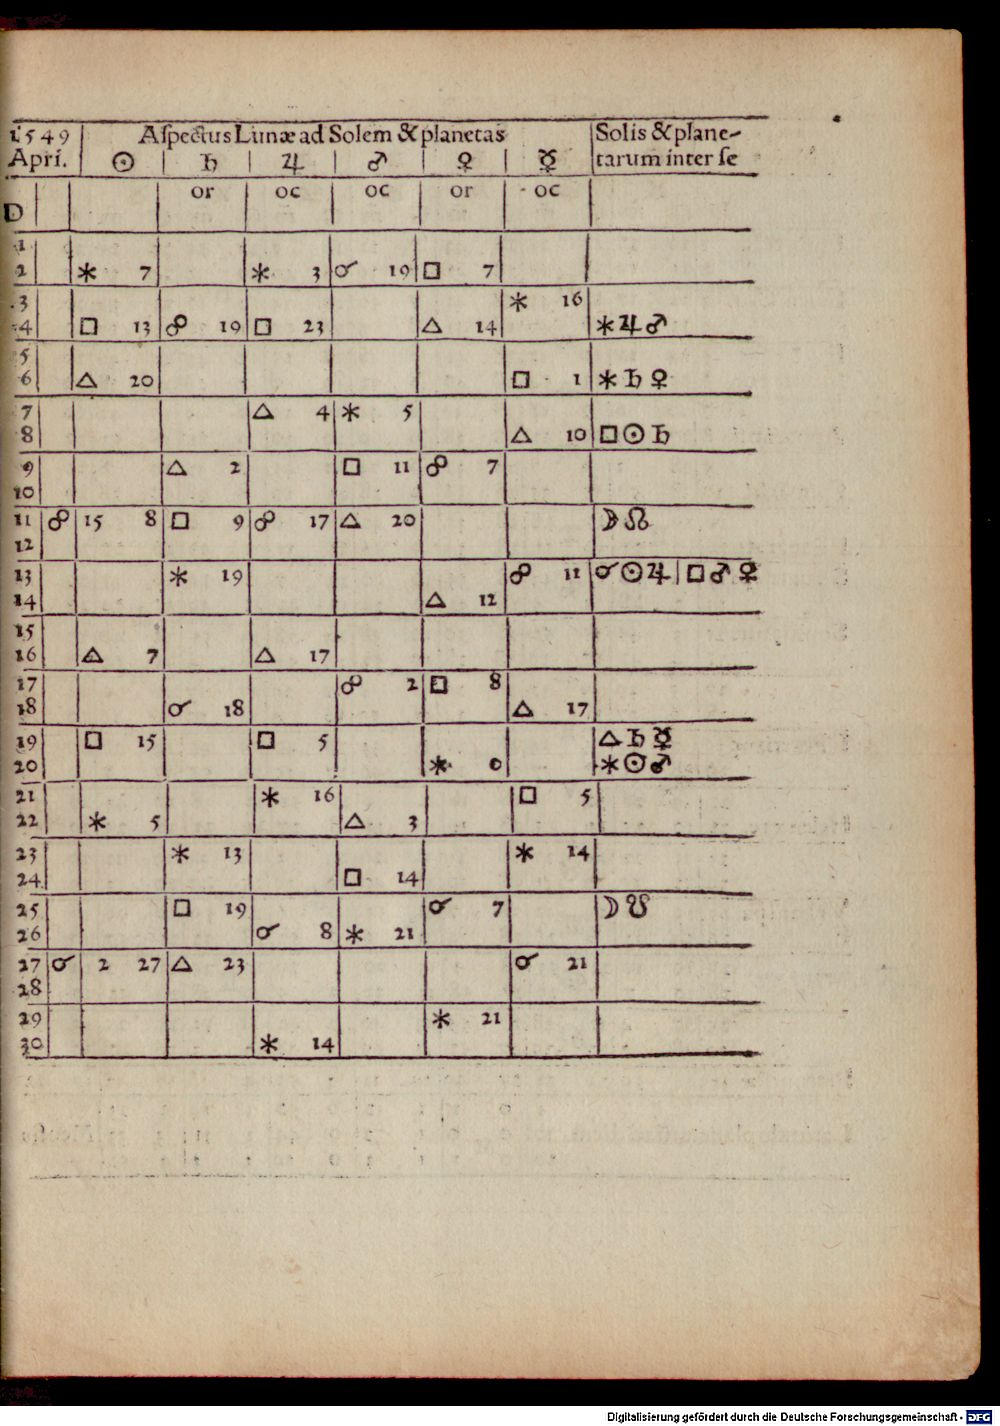 1549 Aſpectus Lunæ ad Solem & planetas Solis & plane-
Apri. ☉ ♄ ♃ ♂ ♀ ☿ tarum inter ſe
D or oc oc or oc
1
2 ⚹ 7 ⚹ 3 ☌ 19 □ 7
3 ⚹ 16
4 □ 13 ☍ 19 □ 23 △ 14 ⚹ ♃ ♂
5
6 △ 20 □ 1 ⚹ ♄ ♀
7 △ 4 ⚹ 5
8 △ 10 □ ☉ ♄
9 △ 2 □ 11 ☍ 7
10
11 ☍ 15 8 □ 9 ☍ 17 △ 20 ☽ ☊
12
13 ⚹ 19 ☍ 11 ☌ ☉ ♃ | □ ♂ ♀
14 △ 12
15
16 △ 7 △ 17
17 ☍ 2 □ 8
18 ☌ 18 △ 17
19 □ 15 □ 5 △ ♄ ☿
20 ⚹ 0 ⚹ ☉ ♂
21 ⚹ 16 □ 5
22 ⚹ 5 △ 3
23 ⚹ 13 ⚹ 14
24 □ 14
25 □ 19 ☌ 7 ☽ ☋
26 ☌ 8 ⚹ 21
27 ☌ 2 27 △ 23 ☌ 21
28
29 ⚹ 21
30 ⚹ 14
Digitalisierung gefördert durch die Deutsche Forschungsgemeinschaft - DFG